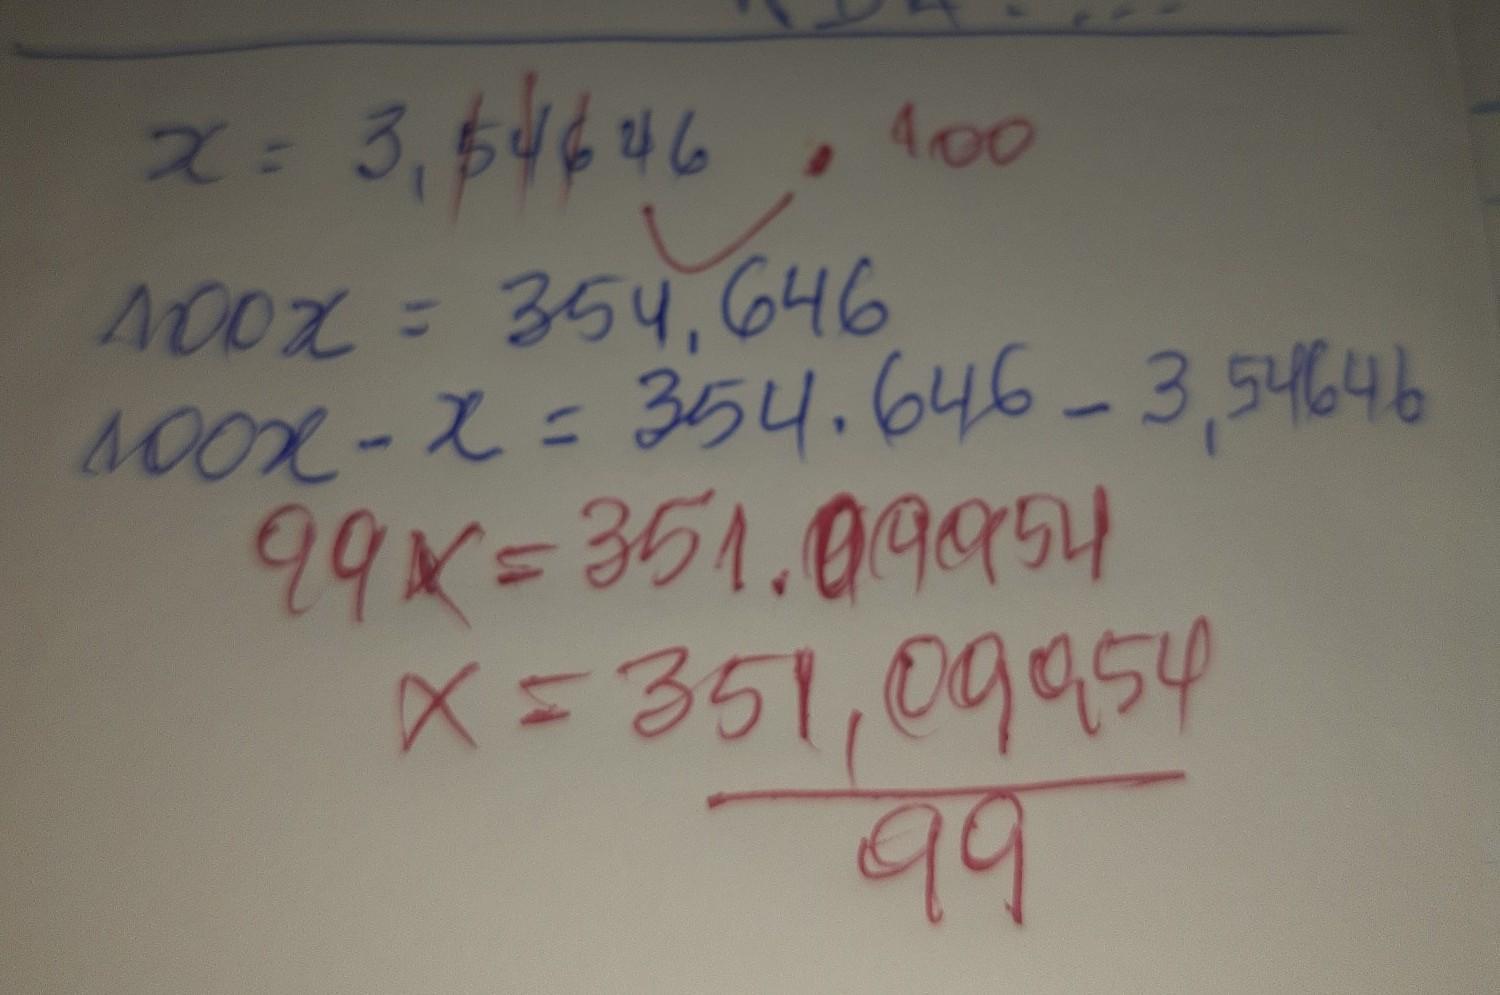 x = 3,54646 • 100
100x = 354,646
100x - x = 354.646 - 3,54646
99x = 351.09954
x = 351,09954
99